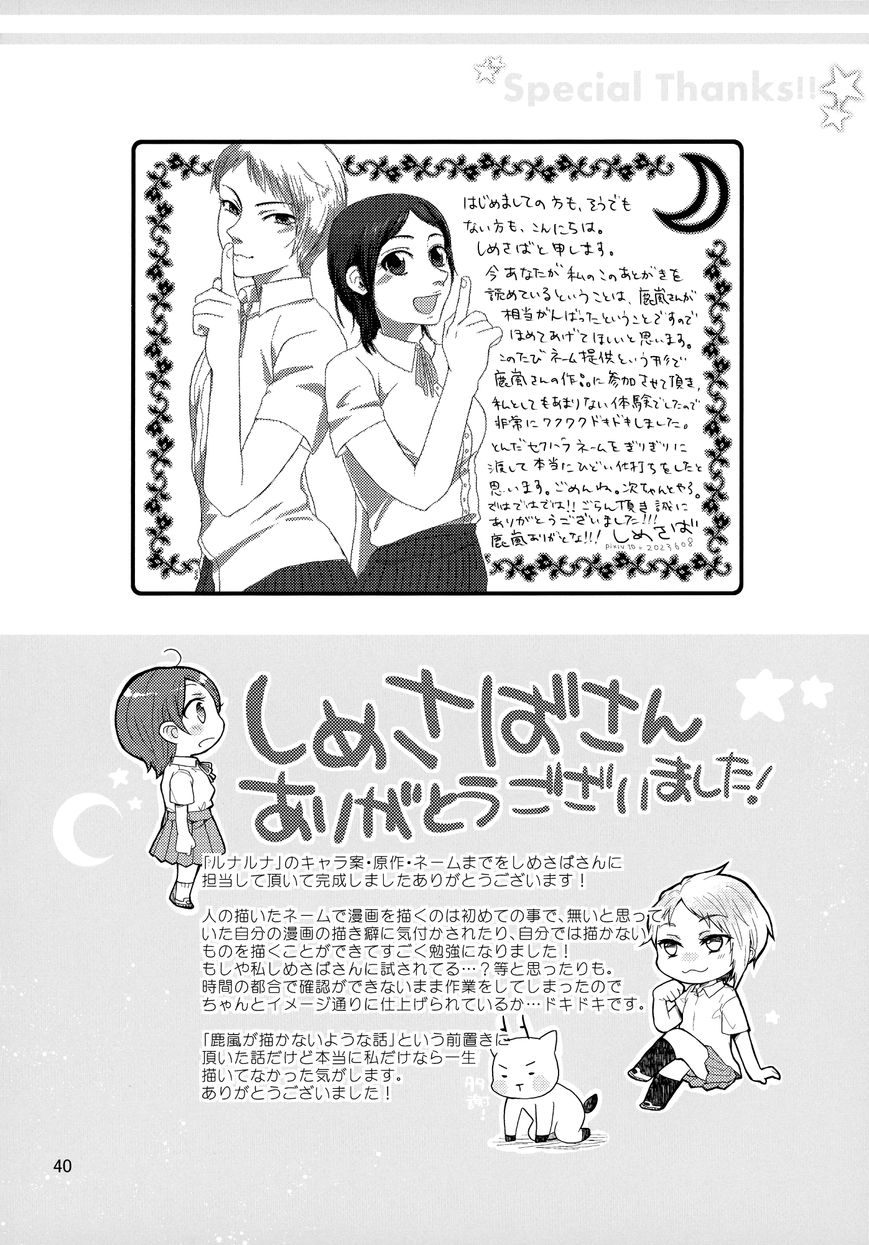 Special Thanks!!
はじめましての方も、そうでも
ない方も、こんにちは。
しめさばと申します。
今あなたが私のこのあとがきを
読めているということは、鹿嵐さんが
相当がんばったということですので
ほめてあげてほしいと思います。
このたびネーム提供という形で
鹿嵐さんの作品に参加させて頂き、
私としてもあまりない体験でしたので
非常にワクワクドキドキしました。
とんだセクハラネームをぎりぎりに
渡して本当にひどい仕打ちをしたと
思います。ごめんね。次ちゃんとやる。
ではではでは!!ごらん頂き誠に
ありがとうございました!!!
鹿嵐ありがとな!!! しめさば
pixiv ID 2023608
しめさばさん
ありがとうございました!
「ルナルナ」のキャラ案・原作・ネームまでをしめさばさんに
担当して頂いて完成しましたありがとうございます！
人の描いたネームで漫画を描くのは初めての事で、無いと思って
いた自分の漫画の描き癖に気付かされたり、自分では描かない
ものを描くことができてすごく勉強になりました！
もしや私しめさばさんに試されてる…？等と思ったりも。
時間の都合で確認ができないまま作業をしてしまったので
ちゃんとイメージ通りに仕上げられているか…ドキドキです。
「鹿嵐が描かないような話」という前置きに
頂いた話だけど本当に私だけなら一生
描いてなかった気がします。
ありがとうございました！
多謝!
40